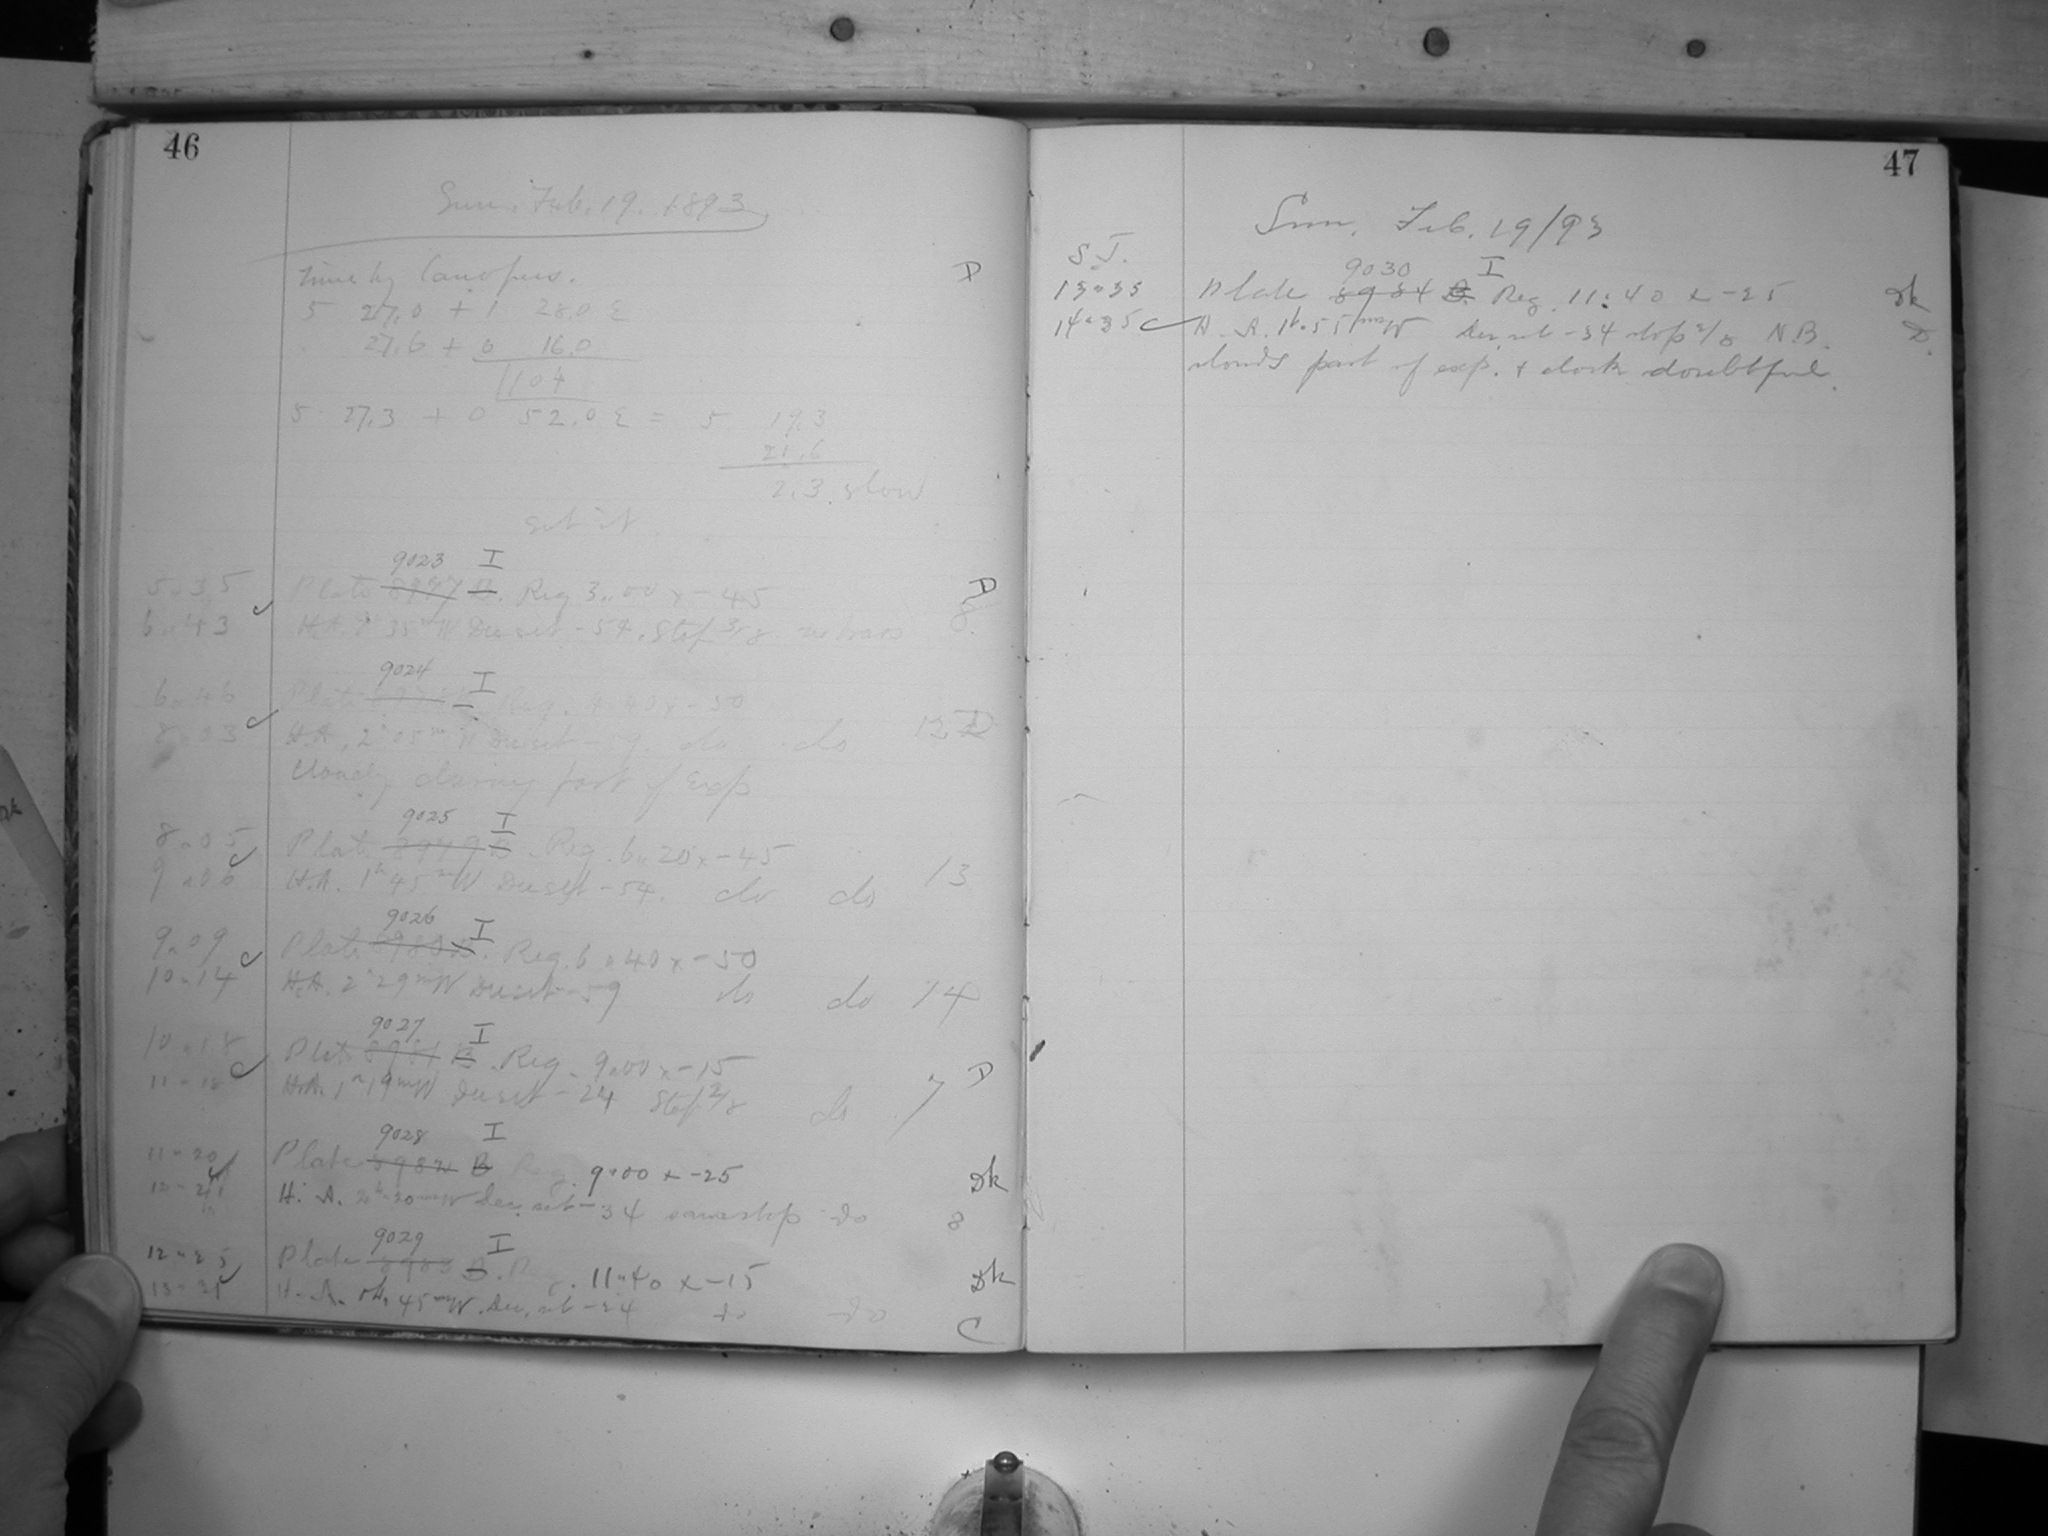 46
Sun. Feb. 19. 1893
Time by Canopus. D
5 27.0 + 1 28.0 E
27.6 + 0 16.0
1 104
5 27.3 + 0 52.0 E = 5 19.3
21.6
2.3 slow
Set it
9023 I
5.35 Plate B. Reg 3.00 x -45 A
6.43 H.A. 35m W Dec set -54. Stop 3/8 8.
9024 I
6.46 Plate Reg. 4.40 x -50
8.03 H.A. 2h 05m W Dec set - do do 12 D
Cloudy during part of Exp
9025 I
8.05 Plate 8979 B. Reg. 6.20 x -45
9.06 H.A. 1h 45m W Dec set -54. do do 13
9026 I
9.09 Plate 8980 B. Reg. 6.40 x -50
10.14 H.A. 2h 29m W Dec set -59 do do 14
9027 I
10.18 Plate 8981 B. Reg. 9.00 x -15 D
11.18 H.A. 1h 19m W Dec set -24 Stop 2/8 do 7
9028 I
11.20 Plate 8982 B Reg. 9.00 x -25 Dk
H. A. 2h.20m W Dec. set -34 same stop do 8
9029 I
12.25 Plate 8983 B. R 11.40 x -15 Dk
13.31 H. A. 45m W. Dec. set -24 do do C
47
Sun. Feb. 19/93
S.T.
9030 I
13.35 Plate 8984 B. Reg. 11.40 x -25 Dk
14.35 H. A. 1h.55m W Dec. set -34 stop 2/8 N.B. D.
clouds part of exp. & clock doubtful.